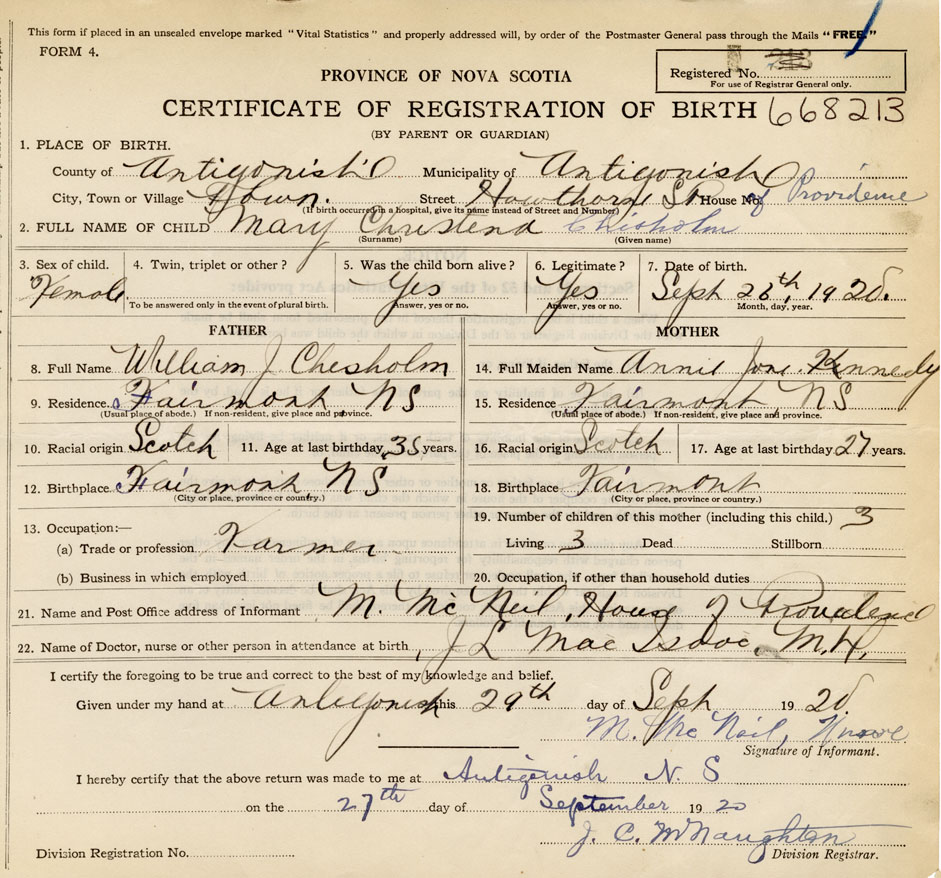 This form if placed in an unsealed envelope marked "Vital Statistics" and properly addressed will, by order of the Postmaster General pass through the Mails "FREE."
FORM 4.
Registered No.
For use of Registrar General only.
PROVINCE OF NOVA SCOTIA
CERTIFICATE OF REGISTRATION OF BIRTH 668213
(BY PARENT OR GUARDIAN)
1. PLACE OF BIRTH.
County of Antigonish Municipality of Antigonish
City, Town or Village Town. Street Hawthorne St House No. of Providence
(If birth occurred in a hospital, give its name instead of Street and Number)
2. FULL NAME OF CHILD Mary Christena Chisholm
(Surname) (Given name)
3. Sex of child. 4. Twin, triplet or other? 5. Was the child born alive? 6. Legitimate? 7. Date of birth.
Female Yes Yes Sept 26th, 1920.
To be answered only in the event of plural birth. Answer, yes or no. Answer, yes or no. Month, day, year.
FATHER MOTHER
8. Full Name William J Chesholm 14. Full Maiden Name Annie Jane Kennedy
9. Residence Fairmont NS 15. Residence Fairmont NS
(Usual place of abode.) If non-resident, give place and province. (Usual place of abode.) If non-resident, give place and province.
10. Racial origin Scotch 11. Age at last birthday 35 years. 16. Racial origin Scotch 17. Age at last birthday 27 years.
12. Birthplace Fairmont NS 18. Birthplace Fairmont
(City or place, province or country.) (City or place, province or country.)
13. Occupation:— 19. Number of children of this mother (including this child.) 3
(a) Trade or profession Farmer Living 3 Dead Stillborn
(b) Business in which employed 20. Occupation, if other than household duties
21. Name and Post Office address of Informant M. McNeil, House of Providence
22. Name of Doctor, nurse or other person in attendance at birth J L Mac Isaac, M.D.
I certify the foregoing to be true and correct to the best of my knowledge and belief.
Given under my hand at Antigonish this 29th day of Sept 1920.
M. McNeil, Nurse
Signature of Informant.
I hereby certify that the above return was made to me at Antigonish N. S
on the 27th day of September 1920
J. C. McNaughton
Division Registrar.
Division Registration No.